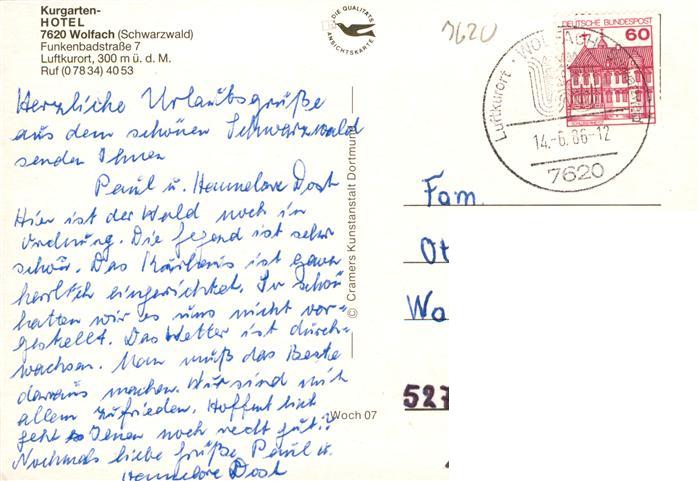 Kurgarten-
HOTEL
7620 Wolfach (Schwarzwald)
Funkenbadstraße 7
Luftkurort, 300 m ü. d. M.
Ruf (0 78 34) 40 53
DIE QUALITÄTS
ANSICHTSKARTE
7620
DEUTSCHE BUNDESPOST
60
Luftkurort · WOLFACH
14.-6.86-12
7620
Herzliche Urlaubsgrüße
aus dem schönen Schwarzwald
senden Ihnen
Paul u. Hannelore Dost
Hier ist der Wald noch in
Ordnung. Die Gegend ist sehr
schön. Das Kurhaus ist ganz
herrlich eingerichtet. So schön
hatten wir es uns nicht vor-
gestellt. Das Wetter ist durch-
wachsen. Man muß das Beste
daraus machen. Wir sind mit
allem zufrieden. Hoffentlich
geht es Ihnen noch recht gut!?
Nochmals liebe Grüße Paul u.
Hannelore Dost
© Cramers Kunstanstalt Dortmund
Woch 07
Fam.
Ot
Wa
527